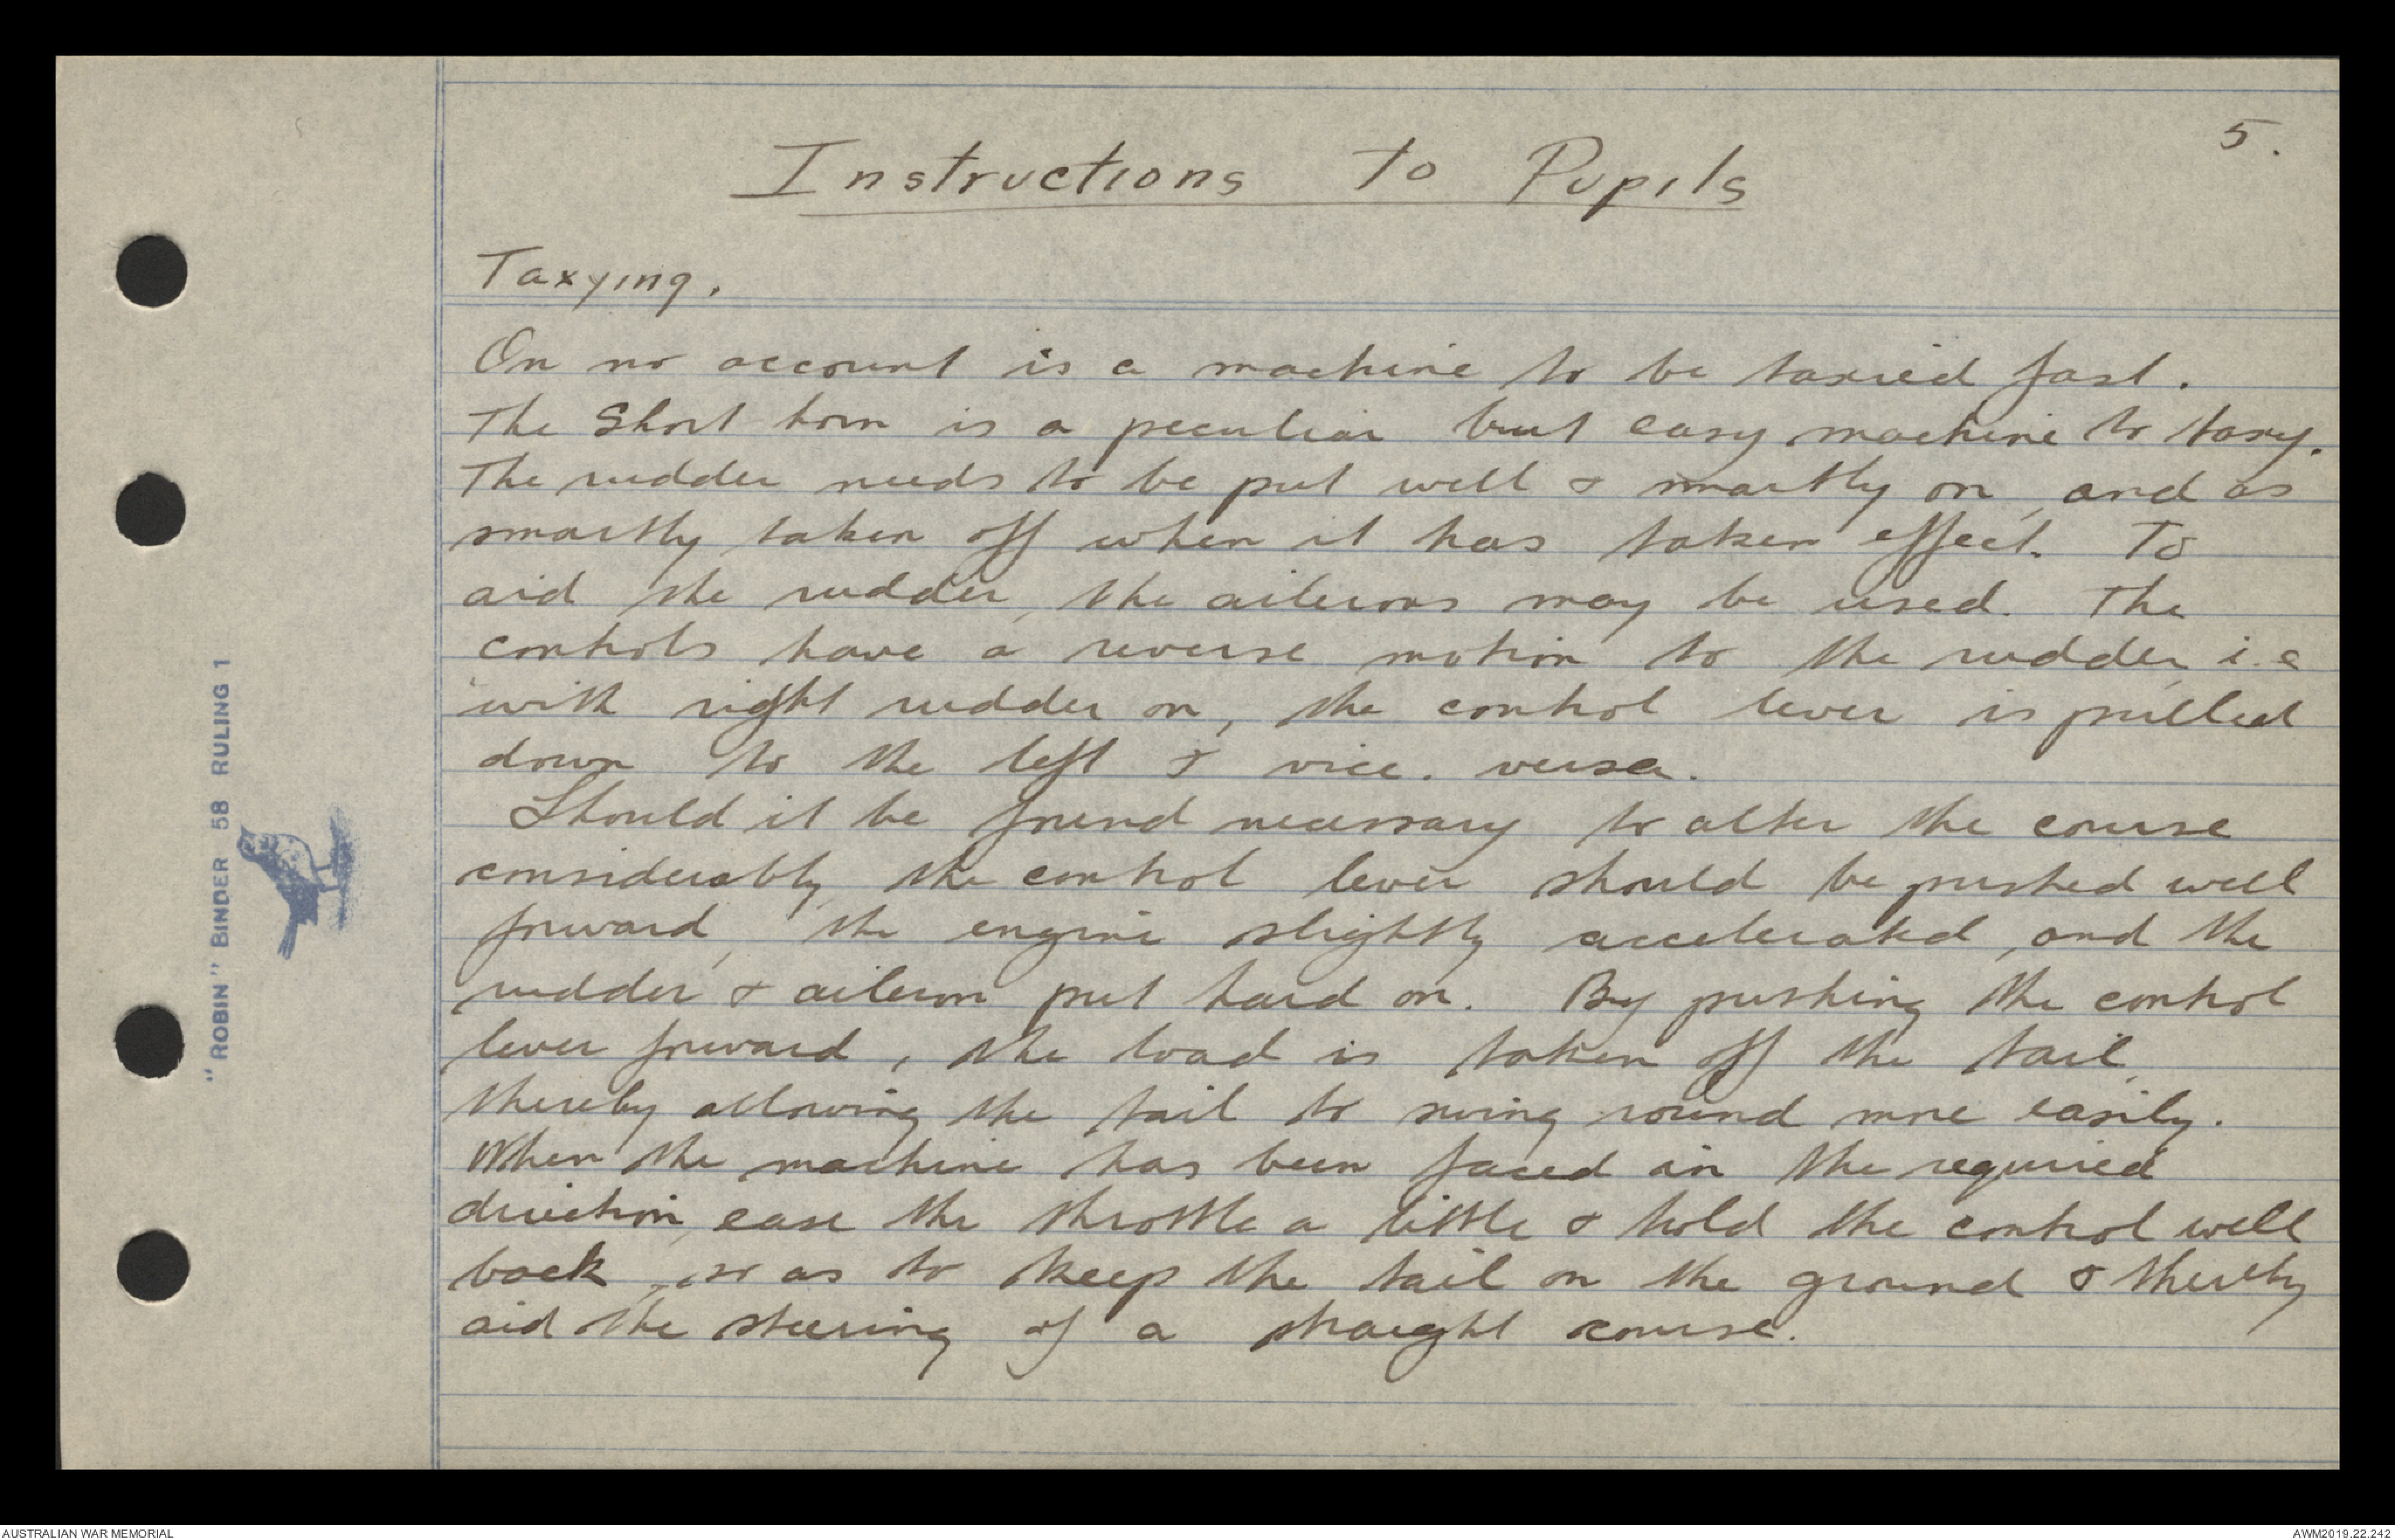 5.
Instructions To Pupils
Taxying.
On no account is a machine to be taxied fast.
The Short horn is a peculiar but easy machine to taxy.
The rudder needs to be put well & smartly on, and as
smartly taken off when it has taken effect. To
aid the rudder, the ailerons may be used. The
controls have a reverse motion to the rudder, i.e
with right rudder on, the control lever is pulled
down to the left & vice. versa.
Should it be found necessary to alter the course
considerably, the control lever should be pushed well
forward, the engine slightly accelerated, and the
rudder & aileron put hard on. By pushing the control
lever forward, the load is taken off the tail,
thereby allowing the tail to swing round more easily.
When the machine has been faced in the required
direction, ease the throttle a little & hold the control well
back, so as to keep the tail on the ground & thereby
aid the steering of a straight course.
"ROBIN" BINDER 58 RULING 1
AUSTRALIAN WAR MEMORIAL
AWM2019.22.242